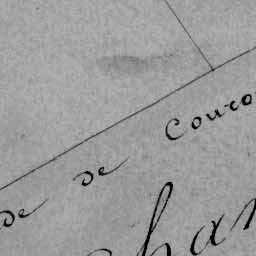 de de Couro
han